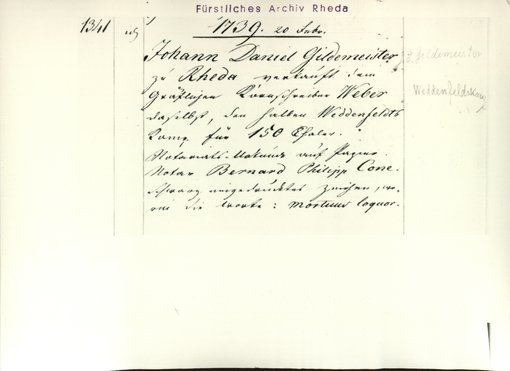 Fürstliches Archiv Rheda
1341
1739. 20 Febr.
Johann Daniel Gildemeister
zu Rheda verkauft dem
Gräflichen Kornschreiber Weber
daselbst, den halben Weddenfeldts
Kamp für 150 Thaler.
Notariats-Urkunde auf Papier.
Notar Bernard Philipp Cone.
schwarz aufgedrucktes Zeichen,
die Worte: mortuus loquor.
Gildemeister
Weddenfeldskamp